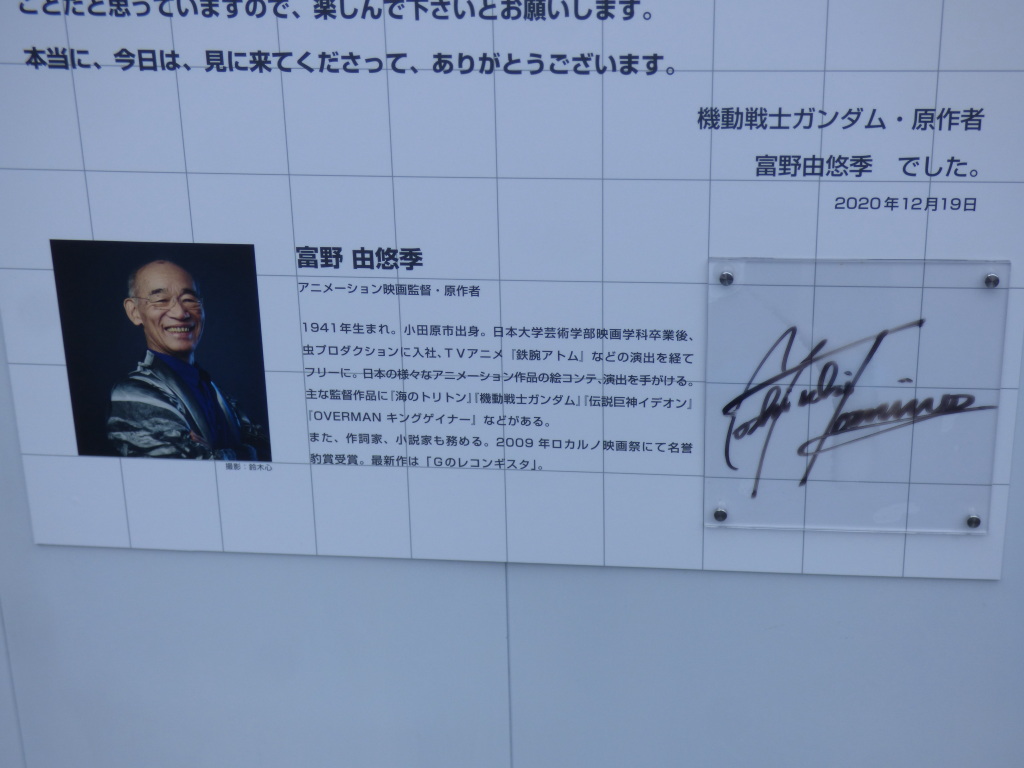 ことだと思っていますので、楽しんで下さいとお願いします。
本当に、今日は、見に来てくださって、ありがとうございます。
機動戦士ガンダム・原作者
富野由悠季　でした。
2020年12月19日
富野 由悠季
アニメーション映画監督・原作者
1941年生まれ。小田原市出身。日本大学芸術学部映画学科卒業後、
虫プロダクションに入社、TVアニメ『鉄腕アトム』などの演出を経て
フリーに。日本の様々なアニメーション作品の絵コンテ、演出を手がける。
主な監督作品に『海のトリトン』『機動戦士ガンダム』『伝説巨神イデオン』
『OVERMAN キングゲイナー』などがある。
また、作詞家、小説家も務める。2009年ロカルノ映画祭にて名誉
豹賞受賞。最新作は「Gのレコンギスタ」。
撮影：鈴木心
Yoshiyuki Tomino